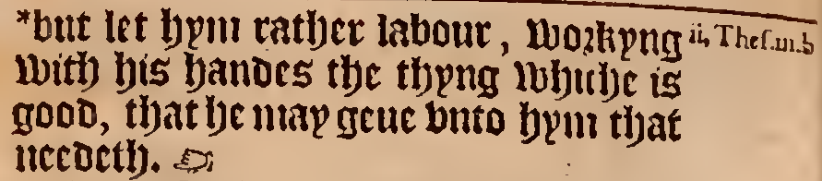 *but let hym rather labour, workyng ii, Thes.iii.b
with his handes the thyng whiche is
good, that he may geue vnto hym that
needeth. ☞